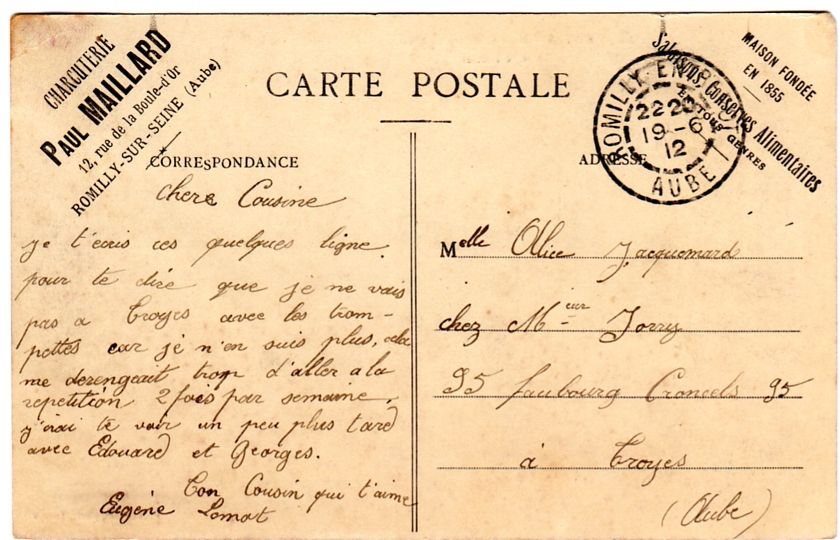 CHARCUTERIE
PAUL MAILLARD
12, rue de la Boule-d'Or
ROMILLY-SUR-SEINE (Aube)
CARTE POSTALE
MAISON FONDÉE
EN 1855
Salaisons Conserves Alimentaires
EN TOUS GENRES
ROMILLY
22
19-6
12
AUBE
CORRESPONDANCE
ADRESSE
chere Cousine
je t'ecris ces quelques ligne
pour te dire que je ne vais
pas a Troyes avec les trom-
pettes car je n'en suis plus, cela
me derengeait trop d'aller a la
repetition 2 fois par semaine.
j'irai te voir un peu plus tard
avec Edouard et Georges.
Ton Cousin qui t'aime
Eugène Lomat
Melle Alice Jacquemard
chez Mr Jorry
95 faubourg Croncels 95
à Troyes
(Aube)